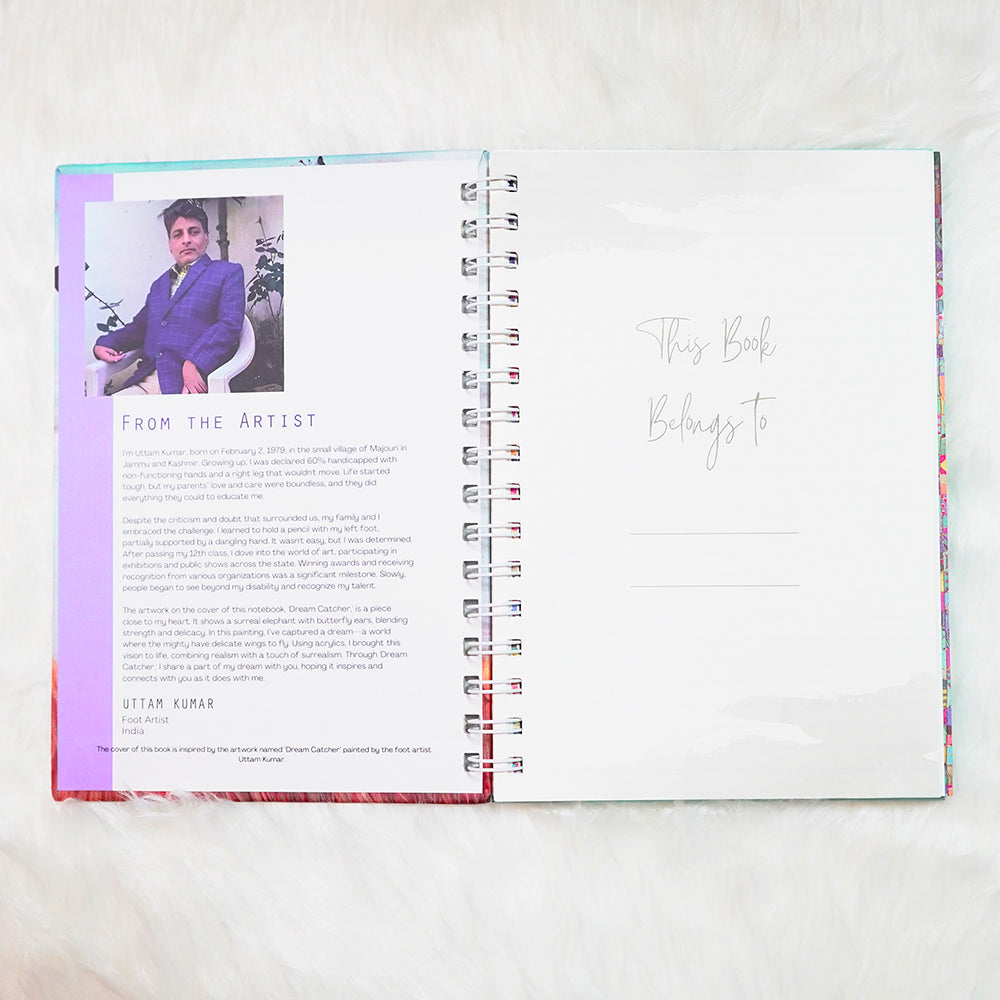 FROM THE ARTIST
I'm Uttam Kumar, born on February 2, 1979, in the small village of Majouri in
Jammu and Kashmir. Growing up, I was declared 60% handicapped with
non-functioning hands and a right leg that wouldn't move. Life started
tough, but my parents' love and care were boundless, and they did
everything they could to educate me.
Despite the criticism and doubt that surrounded us, my family and I
embraced the challenge. I learned to hold a pencil with my left foot,
partially supported by a dangling hand. It wasn't easy, but I was determined.
After passing my 12th class, I dove into the world of art, participating in
exhibitions and public shows across the state. Winning awards and receiving
recognition from various organizations was a significant milestone. Slowly,
people began to see beyond my disability and recognize my talent.
The artwork on the cover of this notebook, 'Dream Catcher,' is a piece
close to my heart. It shows a surreal elephant with butterfly ears, blending
strength and delicacy. In this painting, I've captured a dream—a world
where the mighty have delicate wings to fly. Using acrylics, I brought this
vision to life, combining realism with a touch of surrealism. Through 'Dream
Catcher,' I share a part of my dream with you, hoping it inspires and
connects with you as it does with me.
UTTAM KUMAR
Foot Artist
India
The cover of this book is inspired by the artwork named 'Dream Catcher' painted by the foot artist
Uttam Kumar.
This Book
Belongs to